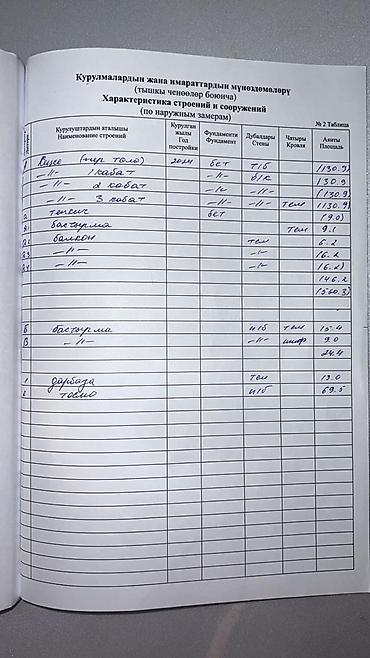 Курулмалардын жана имараттардын мүнөздөмөлөрү
(тышкы ченөөлөр боюнча)
Характеристика строений и сооружений
(по наружным замерам)
№ 2 Таблица
Курулуштардын аталышы Наименование строений Курулган жылы Год постройки Фундаменти Фундамент Дубалдары Стены Чатыры Кровля Аянты Площадь
2024 бет т/б (130.9)
—//— 1 кабат —//— б/к (130.9
—//— 2 кабат —//— —//— (130.9)
—//— 3 кабат —//— —//— тем (130.9)
а тепкич бет (9.0)
а1 бастырма тем 9.1
а2 балкон тем 6.2
а3 —//— —//— (6.2
а4 —//— —//— (6.2)
146.2
(560.3)
Б бастырма и/б тем 15.4
В —//— —//— шиф 9.0
24.4
1 дарбаза тем 13.0
2 тосмо и/б 69.5